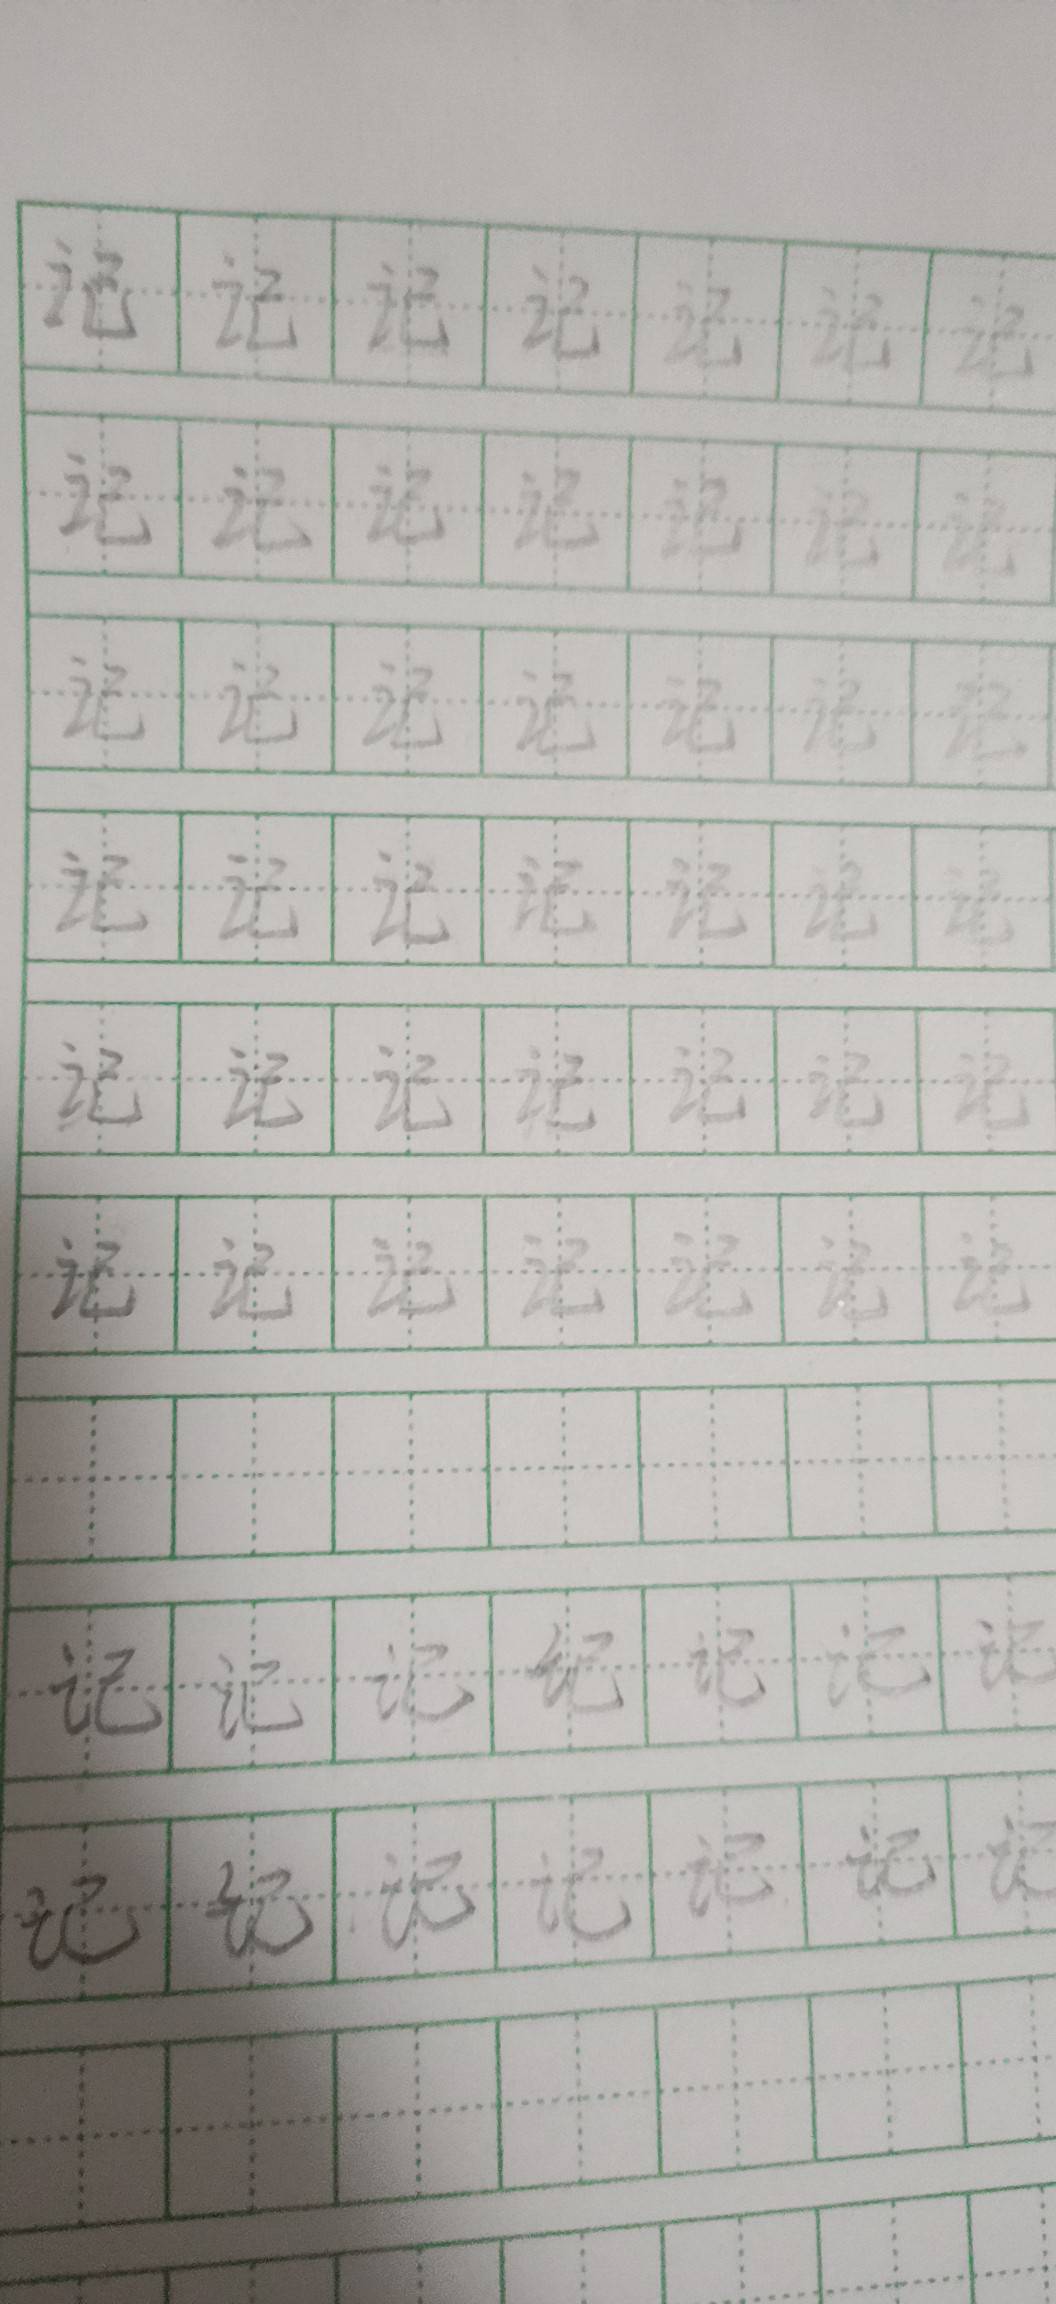 记记记记记记记
记记记记记记记
记记记记记记记
记记记记记记记
记记记记记记记
记记记记记记记
记记记记记记记
记记记记记记记